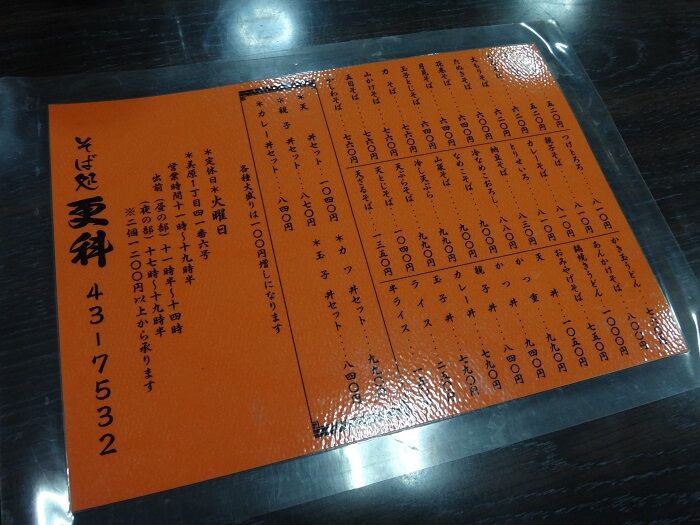 大もりそば
たぬきそば…六二〇円
花巻そば…六二〇円
月見そば…六四〇円
玉子とじそば…六四〇円
力そば…七六〇円
山かけそば…七六〇円
五目そば…七六〇円
つけとろろ…八一〇円
親子そば…八一〇円
カレーそば…八一〇円
とりせいろ…八一〇円
納豆そば…八三〇円
冷なめこおろし…八八〇円
なめこそば…九九〇円
山菜そば…九九〇円
冷し天ぷら…九九〇円
天ぷらそば…九九〇円
天とじそば…一〇四〇円
天ざるそば…一三五〇円
かき玉うどん
あんかけそば…八〇〇円
鍋焼きうどん
おみやげそば…七五〇円
天丼…九九〇円
かつ重…九九〇円
かつ丼…八四〇円
親子丼…七九〇円
カレー丼…七九〇円
玉子丼
ライス
半ライス
＊天丼セット…一〇四〇円
＊カツ丼セット…九九〇円
＊親子丼セット…八七〇円
＊玉子丼セット…八四〇円
＊カレー丼セット…八四〇円
各種大盛りは一〇〇円増しになります
＊定休日＊火曜日
＊美原1丁目四一番六号
営業時間十一時〜十九時半
出前（昼の部）十一時半〜十四時
（夜の部）十七時〜十九時半
※二個一二〇〇円以上から承ります
そば処 更科 43-7532